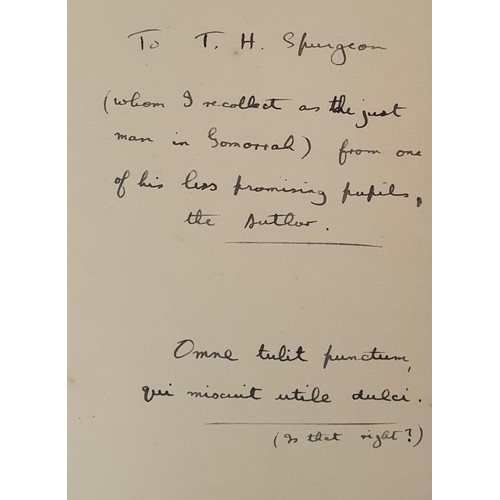 To T. H. Spurgeon
(whom I recollect as the just
man in Gomorrah) from one
of his less promising pupils,
the Author.
Omne tulit punctum,
qui miscuit utile dulci.
(Is that right?)